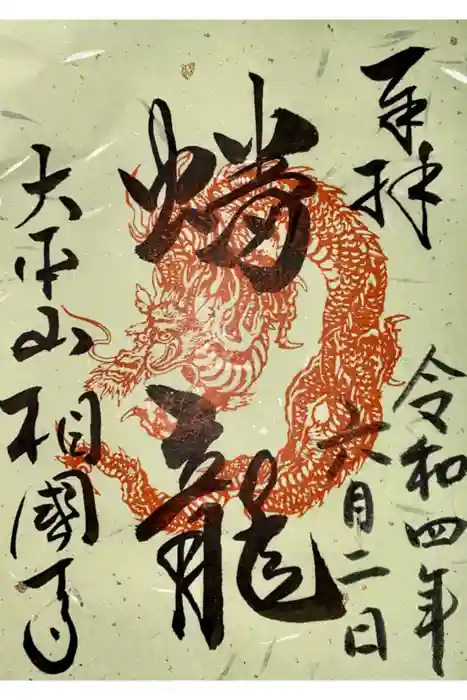 奉拝
令和四年
六月二日
蟠龍
大本山相國寺